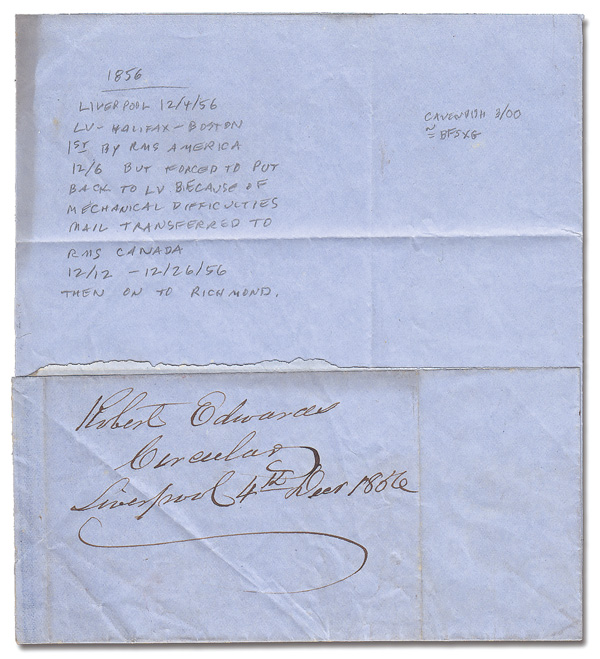 1856
LIVERPOOL 12/4/56
LV - HALIFAX - BOSTON
1ST BY RMS AMERICA
12/6 BUT FORCED TO PUT
BACK TO LV BECAUSE OF
MECHANICAL DIFFICULTIES
MAIL TRANSFERRED TO
RMS CANADA
12/12 - 12/26/56
THEN ON TO RICHMOND.
CAVENDISH 3/00
≅ BFSXG
Robert Edwards
Circular
Liverpool 4th Decr 1856